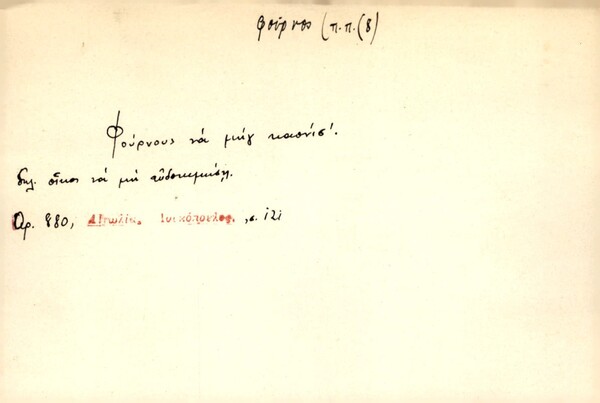 φούρνος (π.π.(8)
Φούρνους νά μήγ καπνίσ'.
δηλ. οἶκος νά μή εὐδοκιμήσῃ.
Ἀρ. 880, Αἰτωλία. Λουκόπουλος, σ. 121